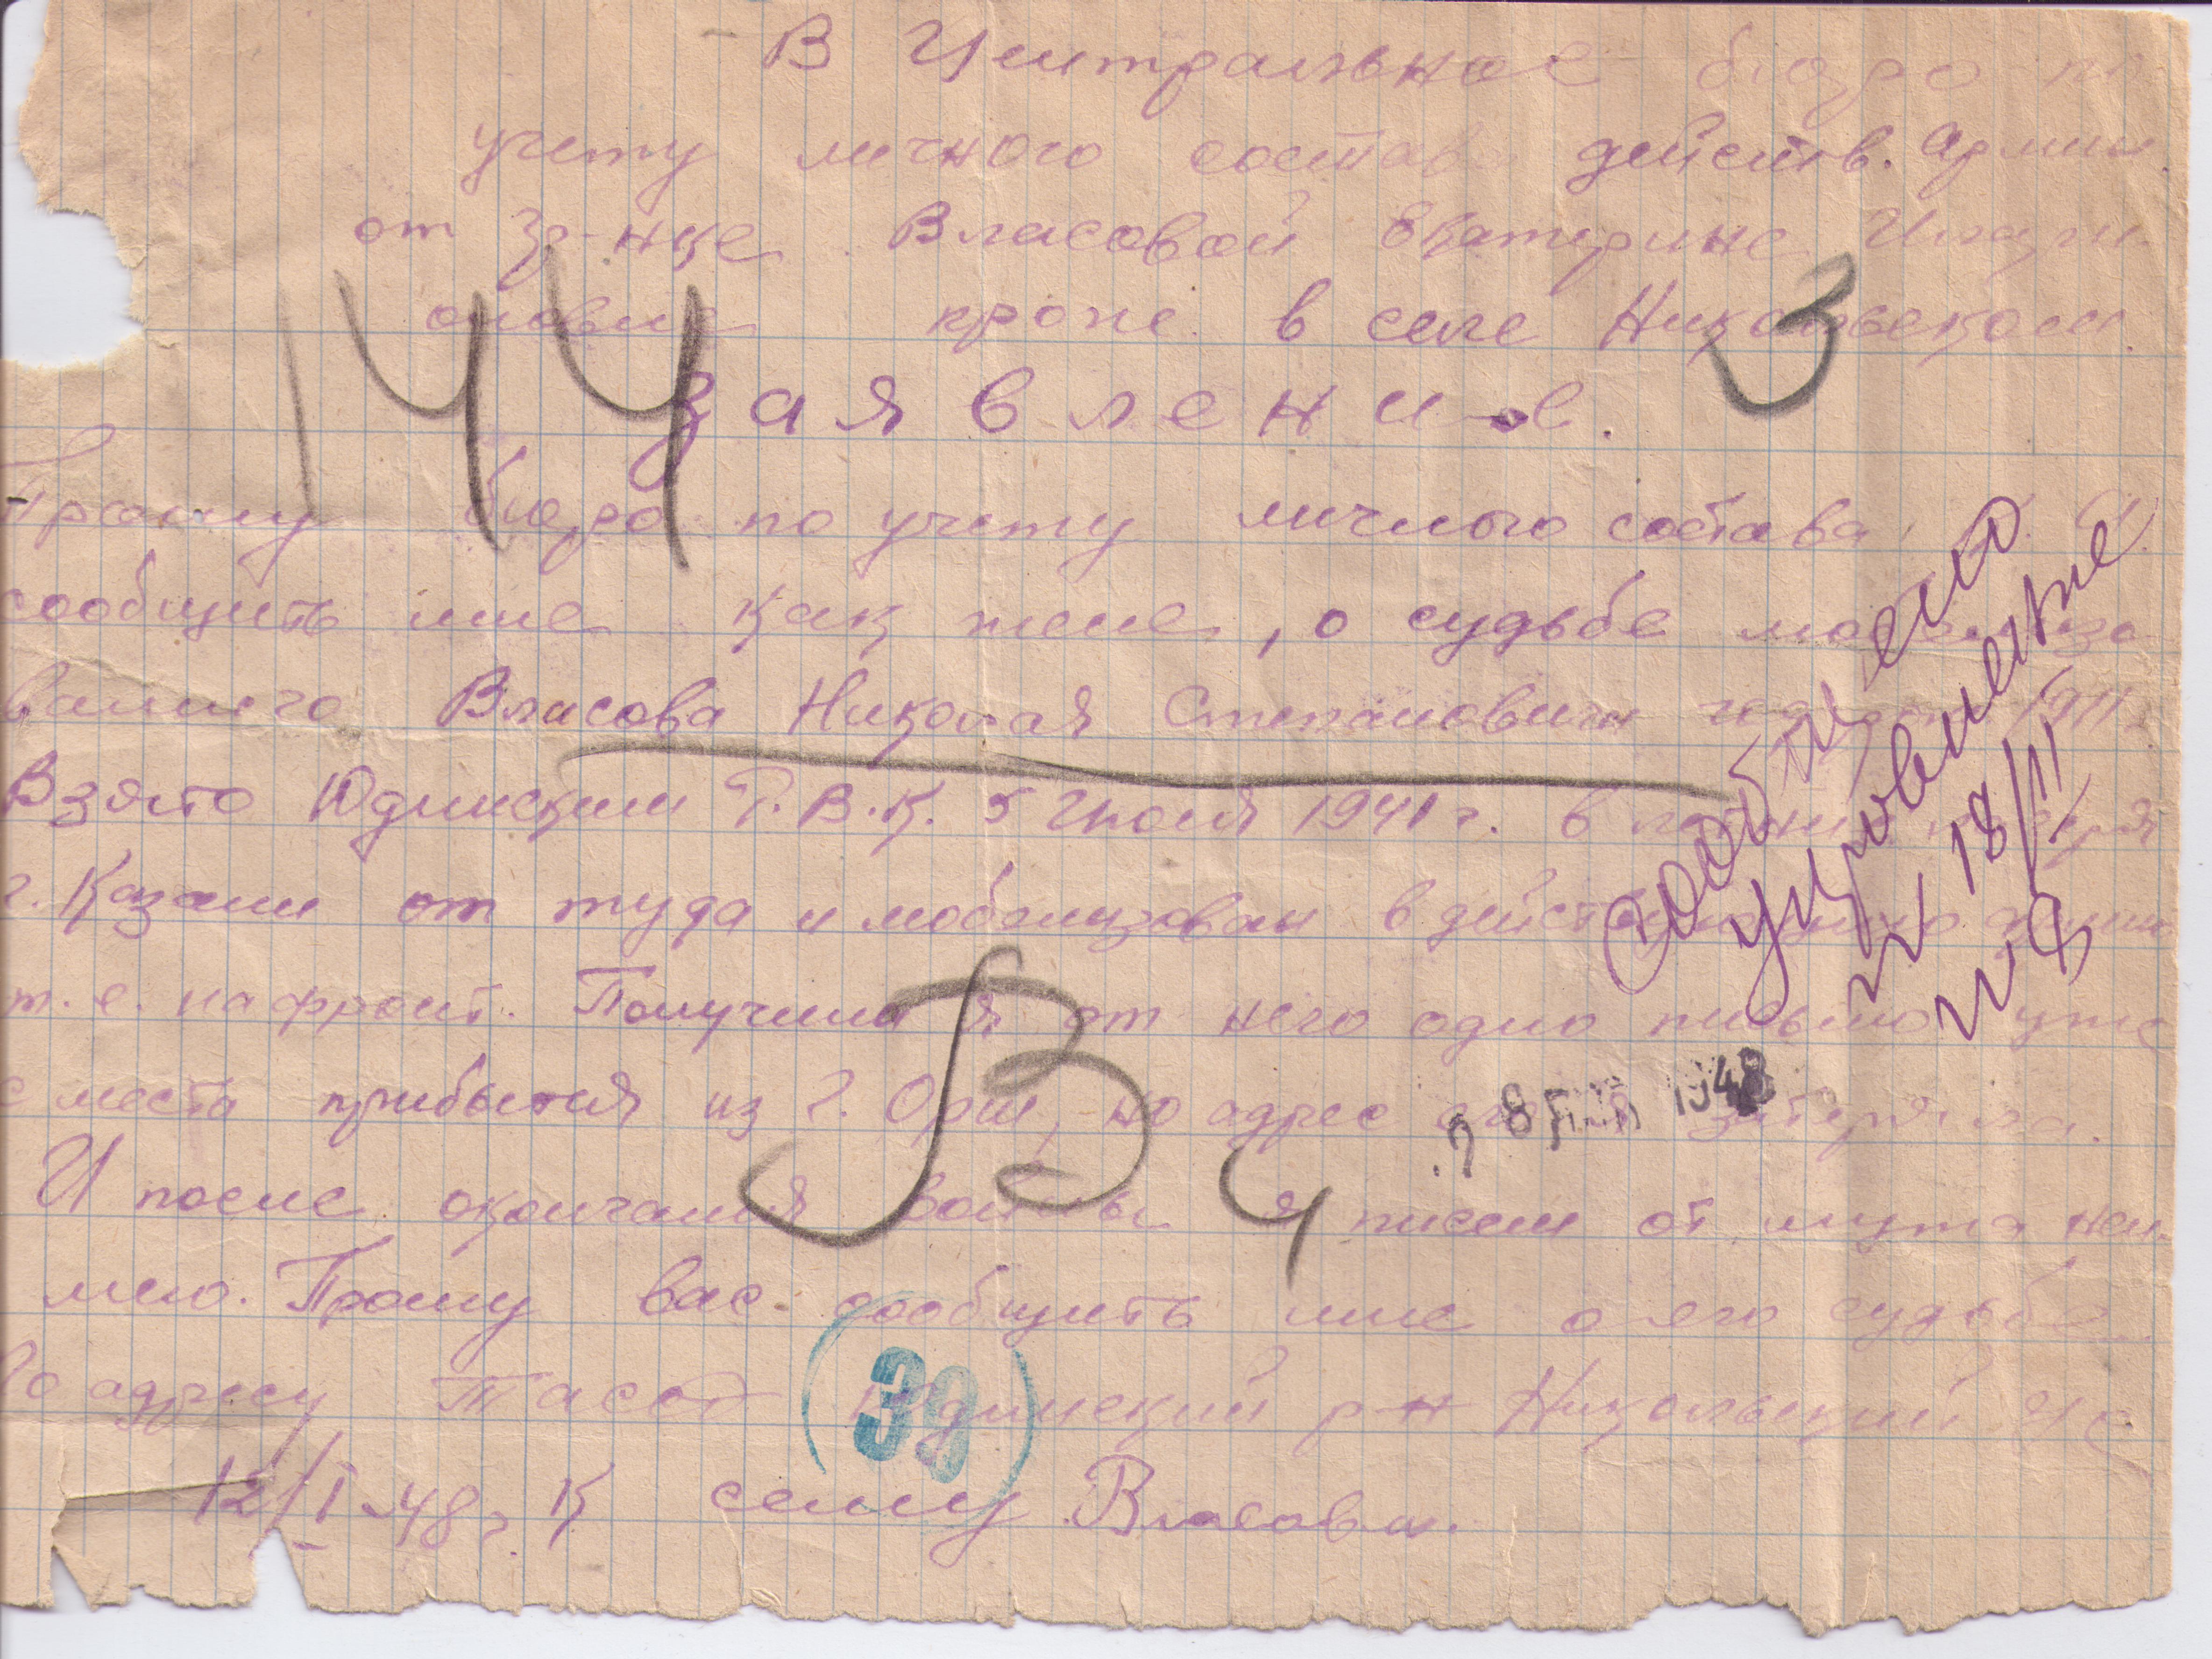 В Центральное бюро по
учету личного состава действ. армии
от гр-нке Власовой Екатерине Илари
оновне прож. в селе Никольском.
144
3
заявление.
Прошу бюро по учету личного состава
сообщить мне как жене, о судьбе
Власова Николая Степановича 1911
Взято Юдинским Р.В.К. 5 Июля 1941 г. в
г. Казани от туда и мобилизован в
т.е. на фронт. Получила я от него одно письмо уже
с места прибытия из г. Орши, но адрес затеряла.
И после окончания войны я писем от мужа неи
мею. Прошу вас сообщить мне о его судьбе
По адресу Тасср Юдинский р-н Никольский
12/I-48 г. К сему Власова
Сообщено
18/II
1948
39